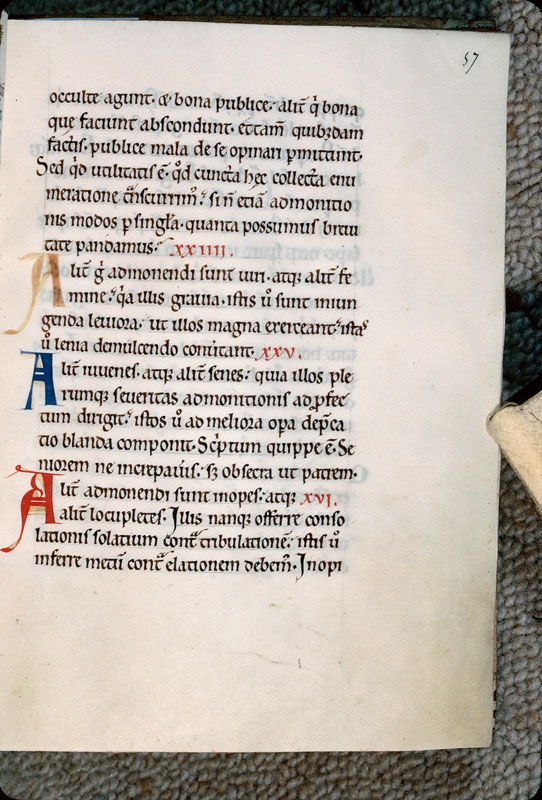 57
occulte agunt. & bona publice. alit̄ q̇ bona
que faciunt abscondunt. et tam̄ quibꝰdam
factis. publice mala de se opinari ꝑmittunt.
Sed qd̓ utilitatis ē. qd̓ cuncta hęc collecta enu
meratione ꝑcurrim᷒. si n̄ etiā admonitio
nis modos ꝑ singla. quanta possumus breui
tate pandamus. xxiiii.
Alit̄ ǵ admonendi sunt uiri. atqꝫ alit̄ fe
mine. q̇a illis grauia. istis u̓ sunt iniun
genda leuiora. ut illos magna exerceant. istas
u̓ lenia demulcendo con̓tant. xxv.
Alit̄ iuuenes. atqꝫ alit̄ senes. quia illos ple
rumqꝫ seueritas admonitionis ad ꝓfec
tum dirigit. istos u̓ ad meliora opa dep̄ca
tio blanda componit. Sc̓ptum quippe ē. Se
niorem ne increpau̓is. sꝫ obsecra ut patrem.
Alit̄ admonendi sunt inopes. atqꝫ xvi.
alit̄ locupletes. Illis nanqꝫ offerre conso
lationis solatium cont͛ tribulationē. istis u̓
inferre metū cont͛ elationem debem᷒. Inopi